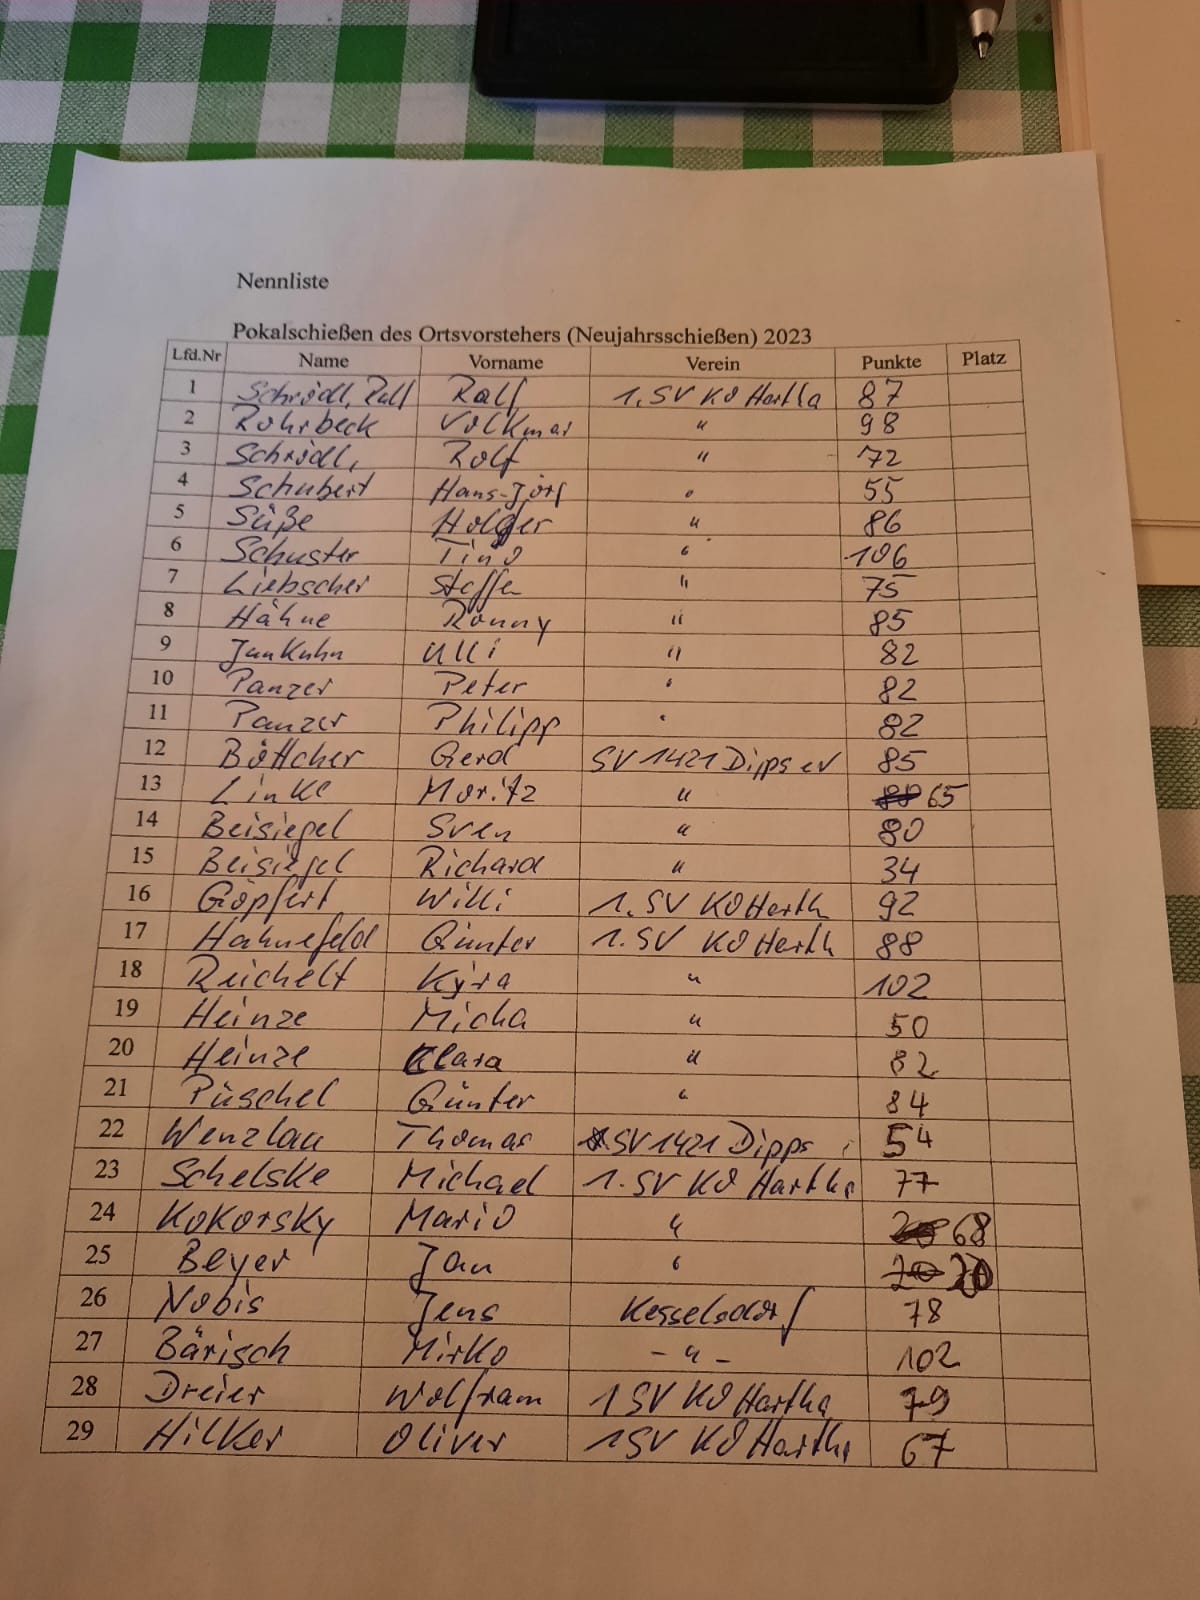 Nennliste
Pokalschießen des Ortsvorstehers (Neujahrsschießen) 2023
Lfd.Nr Name Vorname Verein Punkte Platz
1 Schrödl, Ralf Ralf 1. SV KO Hartha 87
2 Rohrbeck Volkmar " 98
3 Schrödl, Rolf " 72
4 Schubert Hans-Jörg " 55
5 Süße Holger " 86
6 Schuster Tino " 106
7 Liebscher Steffen " 75
8 Hähne Ronny " 85
9 Junkuhn Ulli " 82
10 Panzer Peter " 82
11 Panzer Philipp " 82
12 Böttcher Gerd SV 1421 Dipps eV 85
13 Linke Moritz " 65
14 Beisiegel Sven " 80
15 Beisiegel Richard " 34
16 Göpfert Willi 1. SV KO Harth 92
17 Hahnefeld Günter 1. SV KO Harth 88
18 Reichelt Kyra " 102
19 Heinze Micha " 50
20 Heinze Clara " 82
21 Püschel Günter " 84
22 Wenzlau Thomas SV 1421 Dipps 54
23 Schelske Michael 1. SV KO Hartha 77
24 Kokorsky Mario " 68
25 Beyer Jan "
26 Nobis Jens Kesselsdorf 78
27 Bärisch Mirko - " - 102
28 Dreier Wolfram 1 SV KO Hartha 79
29 Hilker Oliver 1 SV KO Hartha 67